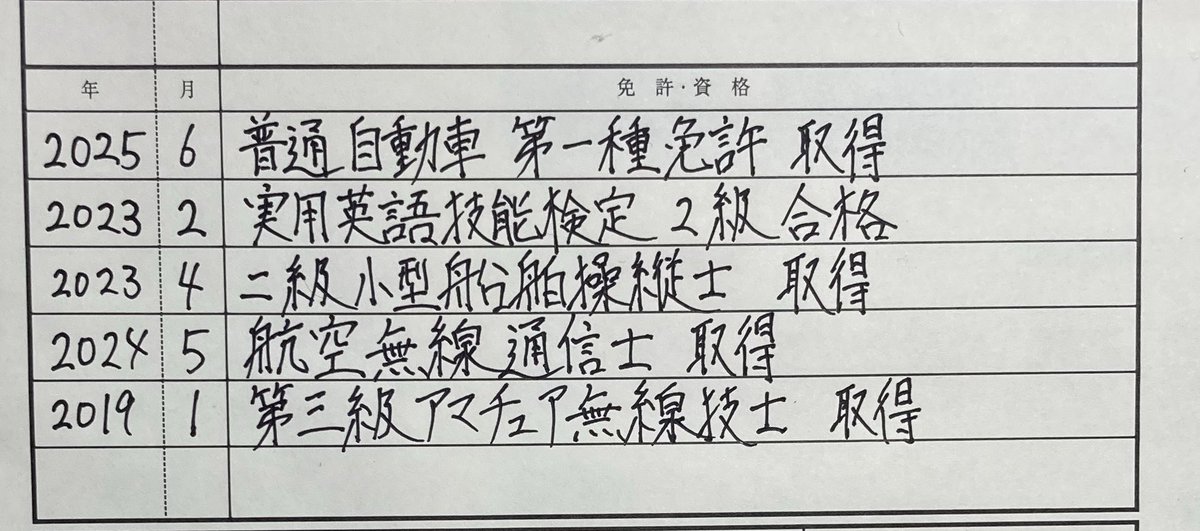 年 月 免許・資格
2025 6 普通自動車 第一種免許 取得
2023 2 実用英語技能検定 2級 合格
2023 4 二級小型船舶操縦士 取得
2024 5 航空無線通信士 取得
2019 1 第三級アマチュア無線技士 取得